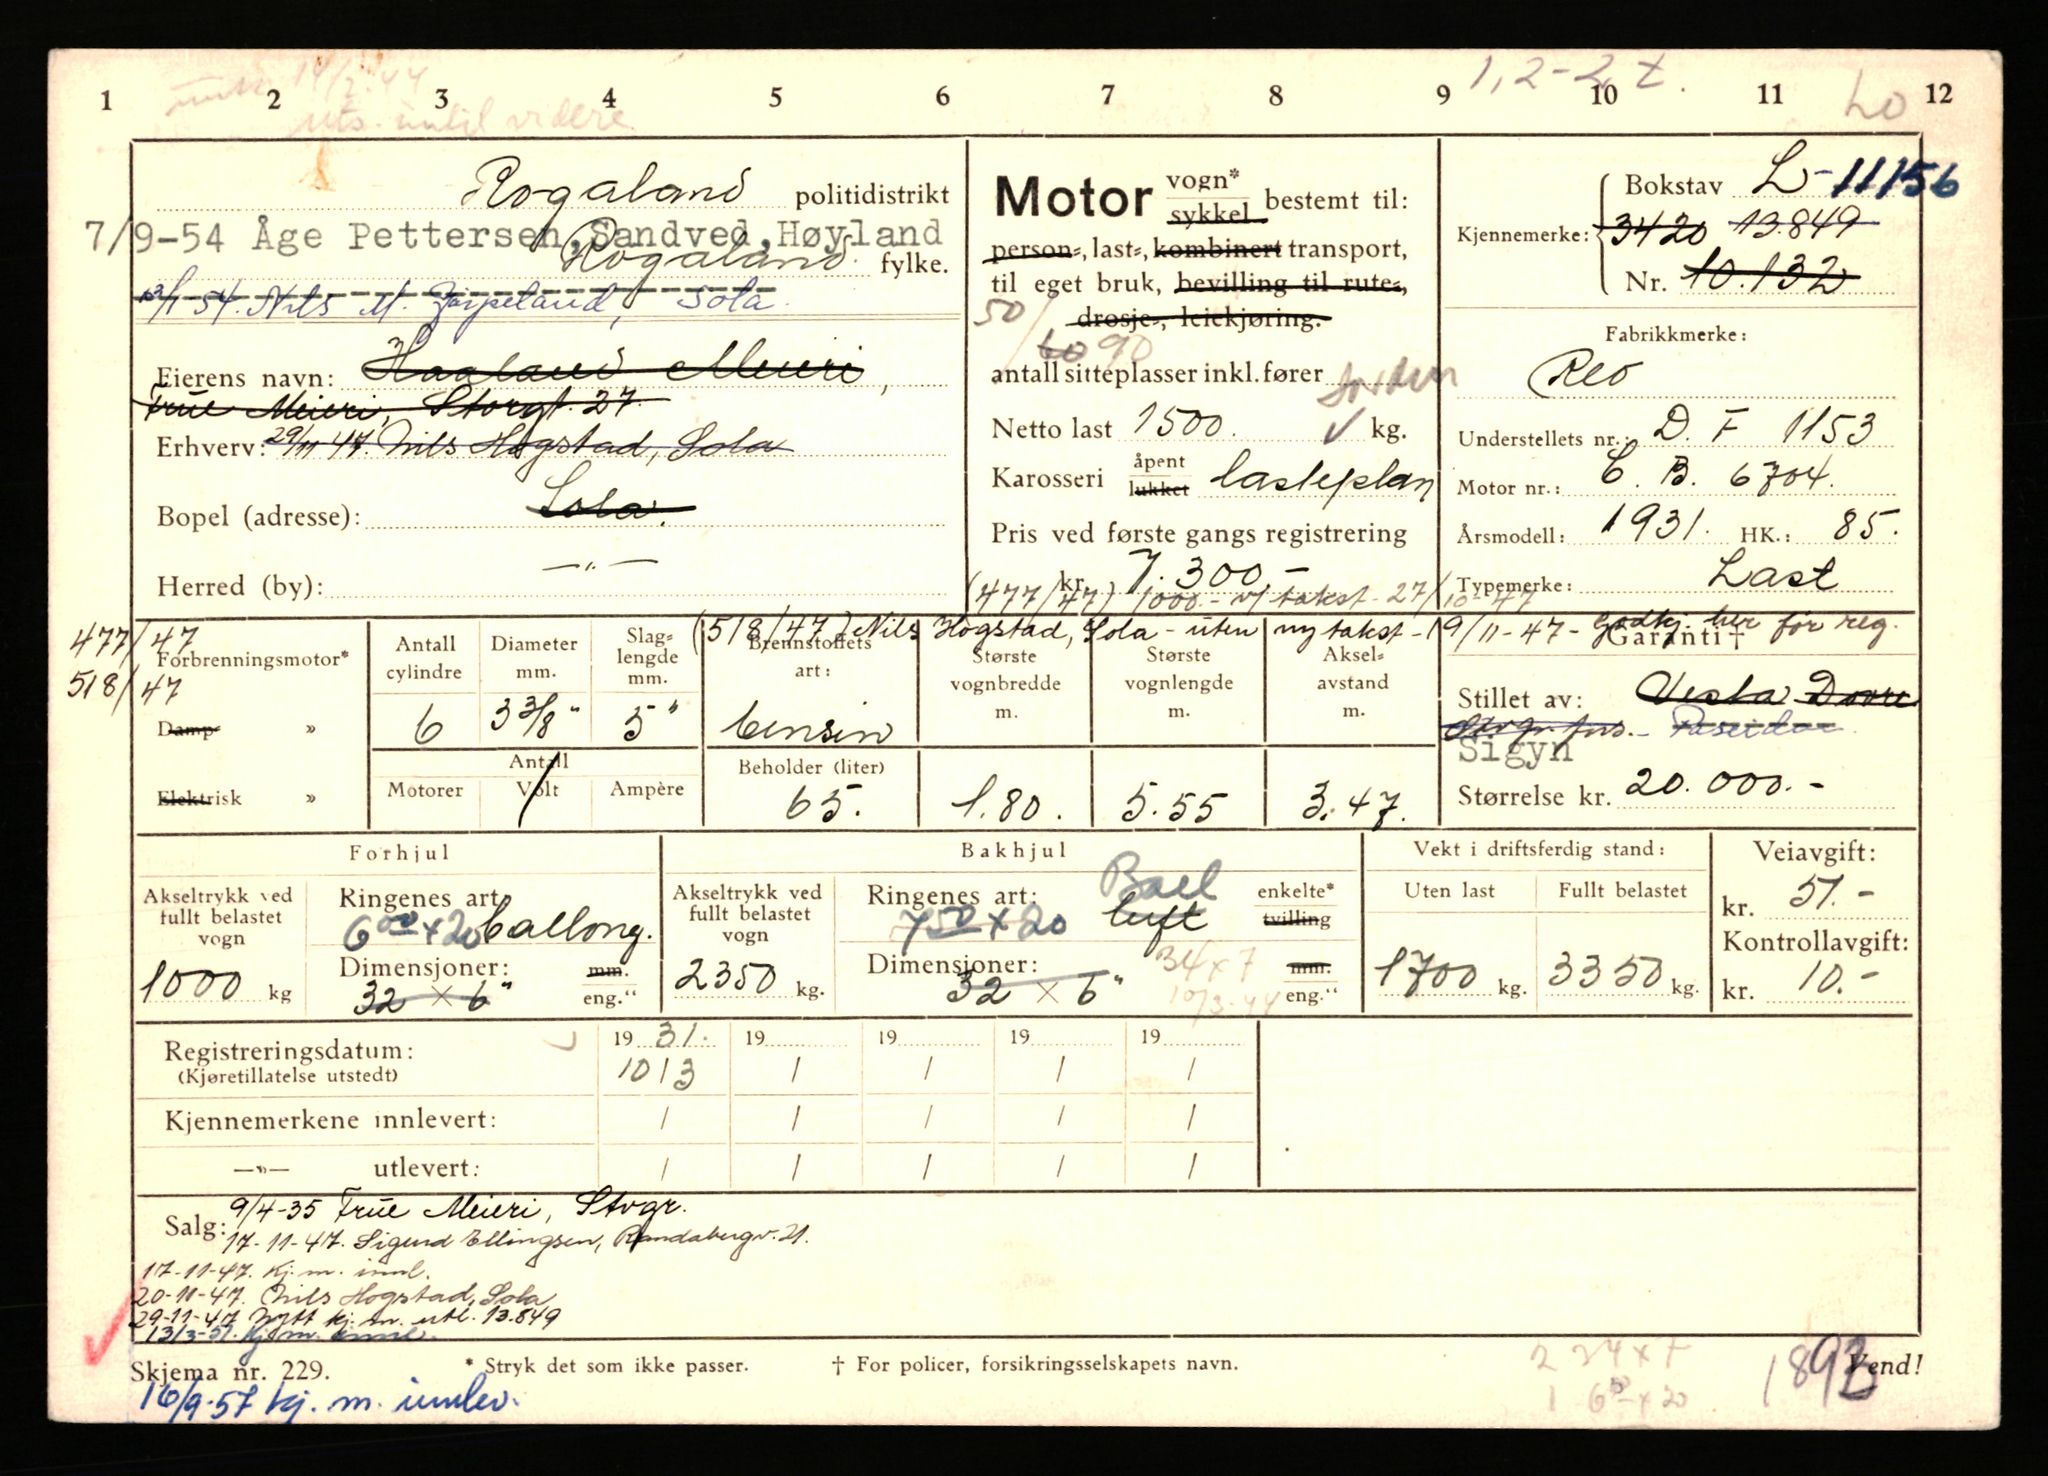 14/2.44
uts. inntil videre
1, 2-2 t.
Lo
1 2 3 4 5 6 7 8 9 10 11 12
Rogaland politidistrikt
7/9-54 Åge Pettersen, Sandved, Høyland
Rogaland fylke.
Nils M. Sola.
Eierens navn: Haaland Meieri,
True Meieri, Storgt. 27.
Erhverv: 29/11 47. Nils Hogstad, Sola
Bopel (adresse): Sola.
Herred (by): —"—
Motor vogn* sykkel bestemt til:
person-, last-, kombinert transport,
til eget bruk, bevilling til rute-,
drosje-, leiekjøring.
50/ 60 90
antall sitteplasser inkl. fører
Netto last 1500. kg.
Karosseri åpent lukket lasteplan
Pris ved første gangs registrering
kr. 7.300 -
(477/47) 1000.- v/ takst 27/10-47
Kjennemerke: Bokstav L-11156
3420 13.849
Nr. 10.132
Fabrikkmerke:
Reo
Understellets nr.: D. F 1153
Motor nr.: C. B. 6704.
Årsmodell: 1931. HK.: 85.
Typemerke: Last
(518/47) Nils Hogstad, Sola - uten ny takst - 19/11-47 - Godkj. her for reg.
477/47
Forbrenningsmotor*
518/47
Damp »
Elektrisk »
Antall cylindre 6
Diameter mm. 3 3/8 "
Slag-lengde mm. 5 "
Antall
Motorer Volt Ampère
Brennstoffets art: bensin
Beholder (liter) 65.
Største vognbredde m. 1.80.
Største vognlengde m. 5.55
Aksel-avstand m. 3.47.
Garanti †
Stillet av: Vesta Dovre
Sigyn
Størrelse kr. 20.000.-
Forhjul
Akseltrykk ved fullt belastet vogn 1000 kg
Ringenes art: 6 00 x 20 ballong.
Dimensjoner: 32 x 6 " mm. eng."
Bakhjul
Akseltrykk ved fullt belastet vogn 2350 kg.
Ringenes art: 7 50 x 20 luft Ball enkelte* tvilling
Dimensjoner: 32 x 6 " 34 x 7 mm. eng."
10/3-44
Vekt i driftsferdig stand:
Uten last 1700 kg.
Fullt belastet 3350 kg.
Veiavgift:
kr. 51.-
Kontrollavgift:
kr. 10.-
Registreringsdatum: 19 31. 19 19 19 19
(Kjøretillatelse utstedt) 10/3 / / / /
Kjennemerkene innlevert: / / / / /
—"— utlevert: / / / / /
Salg: 9/4-35 True Meieri, Stvgr.
17-11-47. Sigurd Ellingsen, Randabergv. 21.
17-11-47. Kj. m. innl.
20-11-47. Nils Hogstad, Sola
29-11-47 Nytt kj. m. utl. 13.849
13/3-51. Kj. m. innl.
Skjema nr. 229. * Stryk det som ikke passer. † For policer, forsikringsselskapets navn. Vend!
16/9-57 kj. m. innlev.
2 34 x 7
1 6 50 x 20